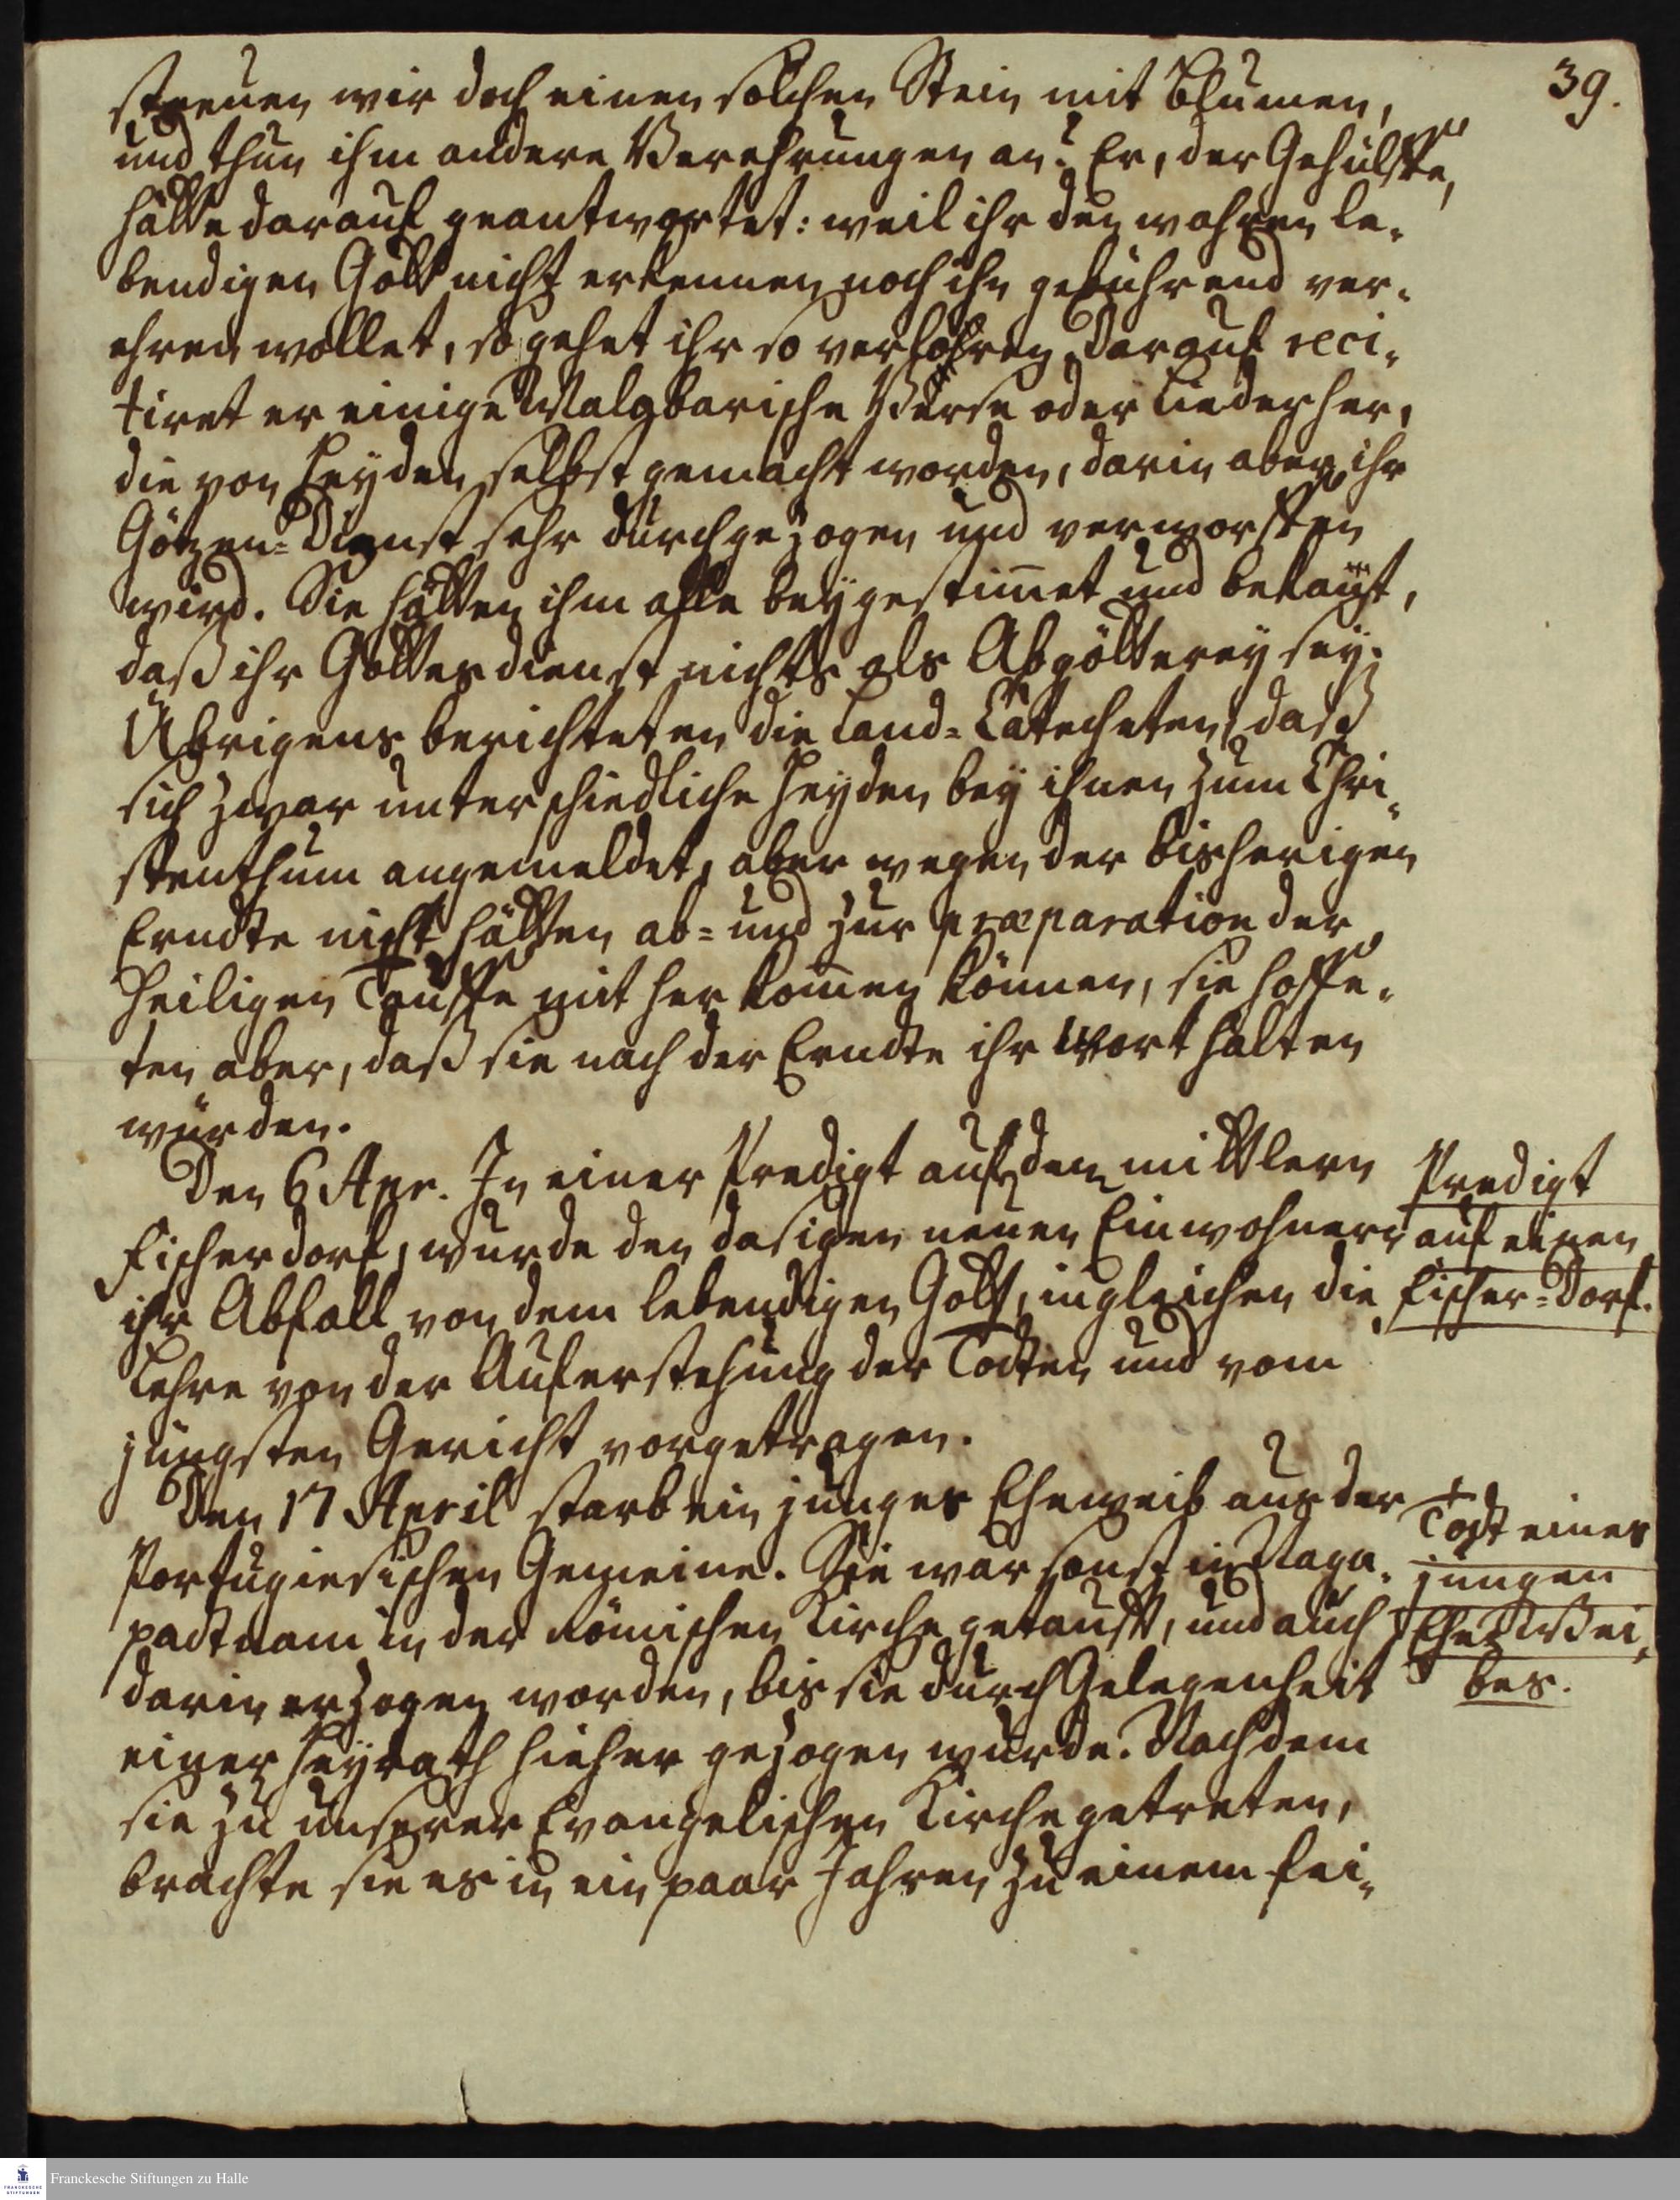 39.
streuen wir doch einen solchen Stein mit Blumen,
und thun ihm andere Verehrungen an? Er, der Gehülffe,
hätte darauf geantwortet: weil ihr den wahren le-
bendigen Gott nicht erkennen noch ihn gebührend ver-
ehren wollet, so gehet ihr so verlohren. Darauf reci-
tiret er einige Malabarische Verse oder Lieder her,
die von Heyden selbst gemacht worden, darin aber ihr
Götzen-Dienst sehr durchgezogen und verworffen
wird. Sie hätten ihm alle beygestim̄et und bekañt,
daß ihr Gottesdienst nichts als Abgötterey sey.
Übrigens berichteten die Land-Catecheten, daß
sich zwar unterschiedliche Heyden bey ihnen zum Chri-
stenthum angemeldet, aber wegen der bisherigen
Erndte nicht hätten ab- und zur præparation der
Heiligen Tauffe mit her kom̄en können, sie hoffe-
ten aber, daß sie nach der Erndte ihr Wort halten
würden.
Den 6 Apr. In einer Predigt auf dem mittlern
Fischerdorf, wurde den dasigen neuen Einwohnern
ihr Abfall von dem lebendigen Gott, ingleichen die
Lehre von der Auferstehung der Todten und vom
jüngsten Gericht vorgetragen.
Predigt
auf einen
Fischer-Dorf.
Den 17 April starb ein junges Eheweib aus der
Portugiesischen Gemeine. Sie war sonst in Naga-
patnam in der Römischen Kirche getaufft, und auch
darin erzogen worden, bis sie durch Gelegenheit
einer Heyrath hieher gezogen wurde. Nachdem
sie zu unserer Evangelischen Kirche getreten,
brachte sie es in ein paar Jahren zu einem fei-
Todt eines
jungen
Ehe-Wei-
bes.
Franckesche Stiftungen zu Halle
FRANCKESCHE
STIFTUNGEN